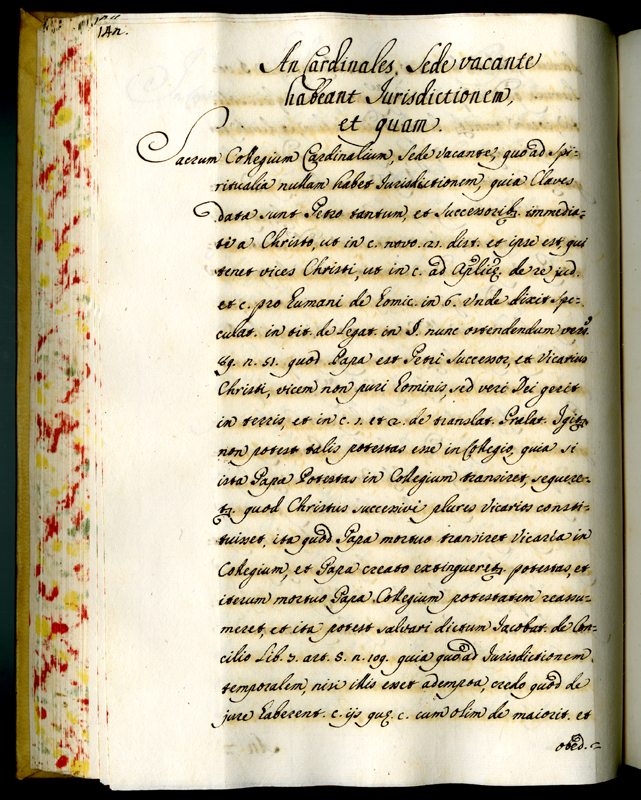 142.
An Cardinales, Sede vacante
habeant Iurisdictionem,
et quam.
Sacrum Collegium Cardinalium, Sede Vacante, quo ad Spi-
ritualia nullam habet Iurisdictionem, quia Claves
data sunt Petro tantum, et Successorib; immedia-
ti a Christo, ut in c. novo. 21. dist. et ipse est, qui
tenet vices Christi, ut in c. ad de re jud.
et c. pro Eumani de Eomic. in 6. Vnde dixit Spe-
culat. in tit. de Legat. in §. nunc ostendendum
89. n. 51. quod Papa est Petri Successor, et Vicarius
Christi, vicem non puri Eominis, sed veri Dei gerit
in terris, et in c. 1. et 2. de translat. Prælat. Igit;
non potest talis potestas esse in Collegio, quia si
ista Papa Potestas in Collegium transiret, sequere-
t; quod Christus successivi plures Vicarios consti-
tuisset, ita quod Papa mortuo transiret Vicaria in
Collegium, et Papa creato extingueret; potestas, et
iterum mortuo Papa Collegium potestatem reassu-
meret, et ita potest salvari dictum Iacobat. de Con-
cilio Lib. 3. art. 8. n. 109. quia quo ad Iurisdictionem
temporalem, nisi illis esset adempta, credo quod de
jure Eaberent. c. ijs quę c. cum olim de maiorit. et
obed.